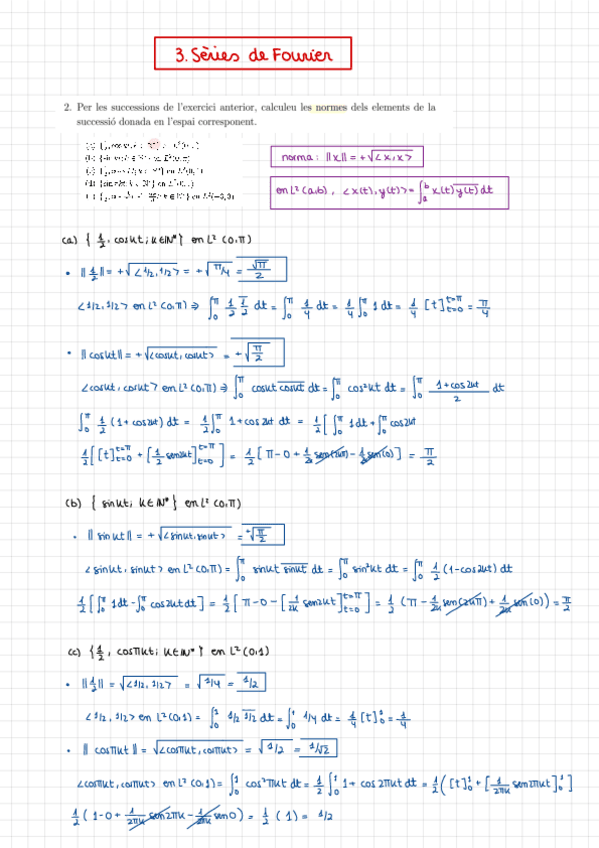 3. Sèries de Fourier
2. Per les successions de l'exercici anterior, calculeu les normes dels elements de la
successió donada en l'espai corresponent.
norma: ||x|| = +√<x,x>
en L² (a,b), <x(t), y(t)> = ∫_a^b x(t) \overline{y(t)} dt
(a) { 1/2, cos kt; k∈ℕ* } en L² (0,π)
• ||1/2|| = +√<1/2, 1/2> = +√(π/4) = √π/2
<1/2, 1/2> en L² (0,π) ⇒ ∫_0^π 1/2 \overline{1/2} dt = ∫_0^π 1/4 dt = 1/4 ∫_0^π 1 dt = 1/4 [t]_{t=0}^{t=π} = π/4
• ||cos kt|| = +√<cos kt, cos kt> = +√(π/2)
<cos kt, cos kt> en L² (0,π) ⇒ ∫_0^π cos kt \overline{cos kt} dt = ∫_0^π cos² kt dt = ∫_0^π (1 + cos 2kt)/2 dt
∫_0^π 1/2 (1 + cos 2kt) dt = 1/2 ∫_0^π 1 + cos 2kt dt = 1/2 [ ∫_0^π 1 dt + ∫_0^π cos 2kt
1/2 [ [t]_{t=0}^{t=π} + [1/2 sen 2kt]_{t=0}^{t=π} ] = 1/2 [ π - 0 + 1/2k sen(2kπ) - 1/2k sen(0) ] = π/2
(b) { sin kt; k∈ℕ* } en L² (0,π)
• || sin kt || = +√<sin kt, sin kt> = +√(π/2)
<sin kt, sin kt> en L² (0,π) = ∫_0^π sin kt \overline{sin kt} dt = ∫_0^π sin² kt dt = ∫_0^π 1/2 (1 - cos 2kt) dt
1/2 [ ∫_0^π 1 dt - ∫_0^π cos 2kt dt ] = 1/2 [ π - 0 - [1/2k sen 2kt]_{t=0}^{t=π} ] = 1/2 (π - 1/2k sen(2kπ) + 1/2k sen(0)) = π/2
(c) { 1/2, cos πkt; k∈ℕ* } en L² (0,1)
• ||1/2|| = √<1/2, 1/2> = √1/4 = 1/2
<1/2, 1/2> en L² (0,1) = ∫_0^1 1/2 \overline{1/2} dt = ∫_0^1 1/4 dt = 1/4 [t]_0^1 = 1/4
• || cos πkt || = √<cos πkt, cos πkt> = √1/2 = 1/√2
<cos πkt, cos πkt> en L² (0,1) = ∫_0^1 cos² πkt dt = 1/2 ∫_0^1 1 + cos 2πkt dt = 1/2 ( [t]_0^1 + [1/2πk sen 2πkt]_0^1 ]
1/2 ( 1 - 0 + 1/2πk sen 2πk - 1/2πk sen 0 ) = 1/2 (1) = 1/2